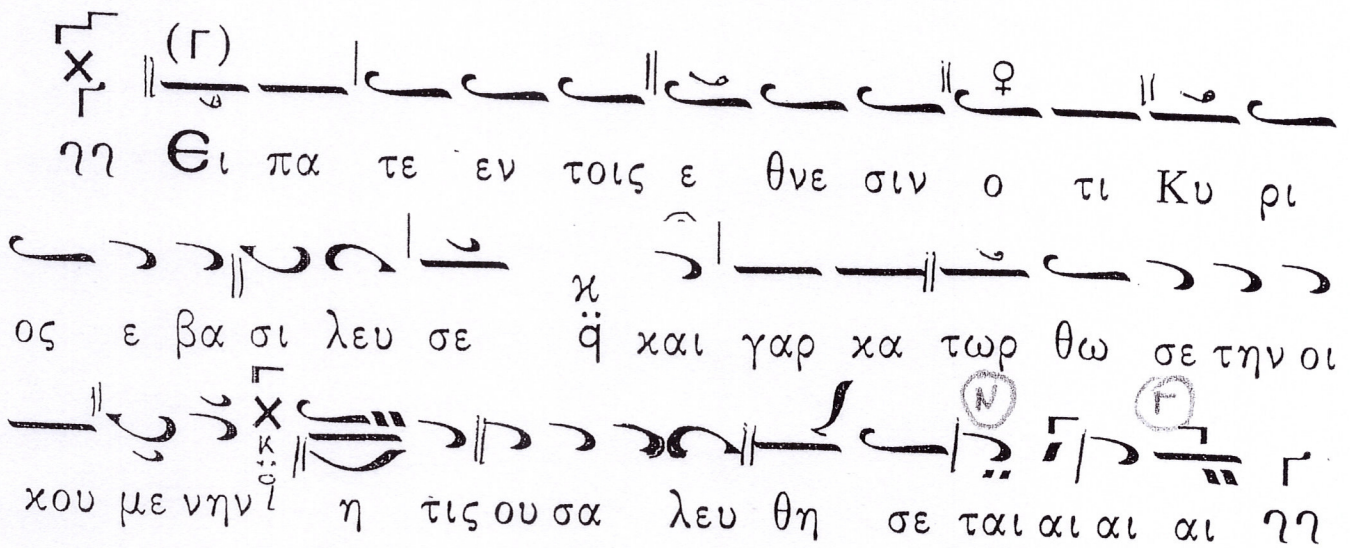 (Γ)
ηη Ει πα τε εν τοις ε θνε σιν ο τι Κυ ρι
ος ε βα σι λευ σε ϰ q̈ και γαρ κα τωρ θω σε την οι
N Γ
κου με νην η τις ου σα λευ θη σε ται αι αι αι ηη